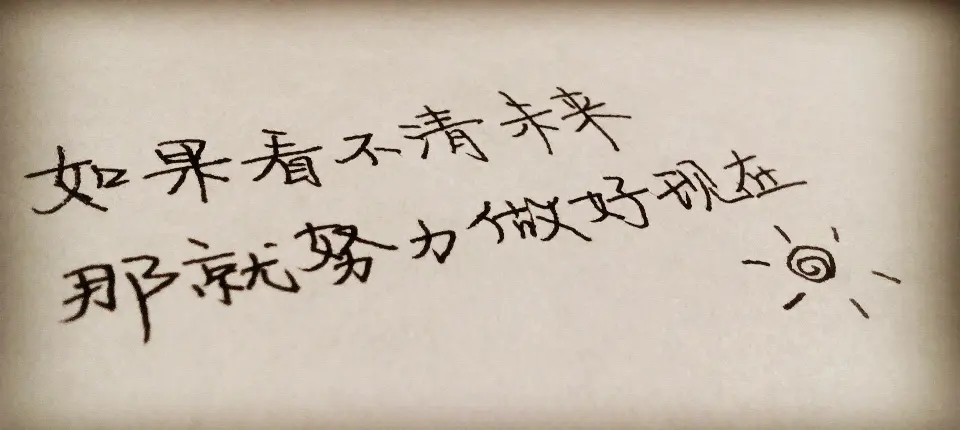 如果看不清未来
那就努力做好现在